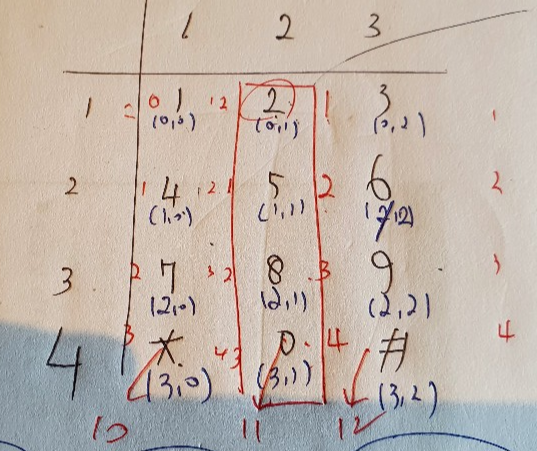 1 2 3
1 = 0 1 12 2 1 3 1
(0,0) (0,1) (0,2)
2 1 4 , 2 1 5 2 6 2
(1,0) (1,1) (1,2)
3 2 7 3 2 8 3 9 3
(2,0) (2,1) (2,2)
4 3 * 4 3 0 4 # 4
(3,0) (3,1) (3,2)
10 11 12